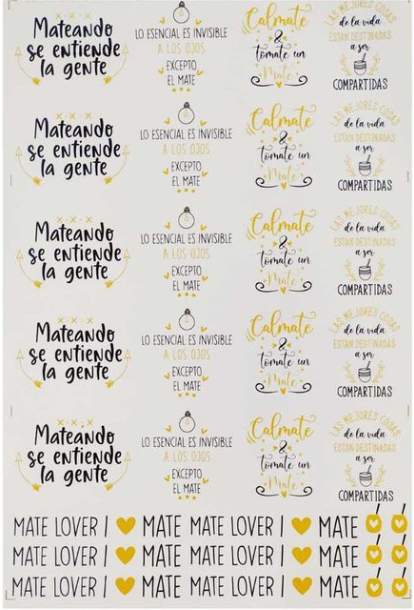 Mateando
se entiende
la gente
LO ESENCIAL ES INVISIBLE
A LOS OJOS
EXCEPTO
EL MATE
Calmate
&
tomate un
Mate
LAS MEJORES COSAS
de la vida
ESTAN DESTINADAS
a ser
COMPARTIDAS
Mateando
se entiende
la gente
LO ESENCIAL ES INVISIBLE
A LOS OJOS
EXCEPTO
EL MATE
Calmate
&
tomate un
Mate
LAS MEJORES COSAS
de la vida
ESTAN DESTINADAS
a ser
COMPARTIDAS
Mateando
se entiende
la gente
LO ESENCIAL ES INVISIBLE
A LOS OJOS
EXCEPTO
EL MATE
Calmate
&
tomate un
Mate
LAS MEJORES COSAS
de la vida
ESTAN DESTINADAS
a ser
COMPARTIDAS
Mateando
se entiende
la gente
LO ESENCIAL ES INVISIBLE
A LOS OJOS
EXCEPTO
EL MATE
Calmate
&
tomate un
Mate
LAS MEJORES COSAS
de la vida
ESTAN DESTINADAS
a ser
COMPARTIDAS
Mateando
se entiende
la gente
LO ESENCIAL ES INVISIBLE
A LOS OJOS
EXCEPTO
EL MATE
Calmate
&
tomate un
Mate
LAS MEJORES COSAS
de la vida
ESTAN DESTINADAS
a ser
COMPARTIDAS
MATE LOVER I MATE MATE LOVER I MATE
MATE LOVER I MATE MATE LOVER I MATE
MATE LOVER I MATE MATE LOVER I MATE